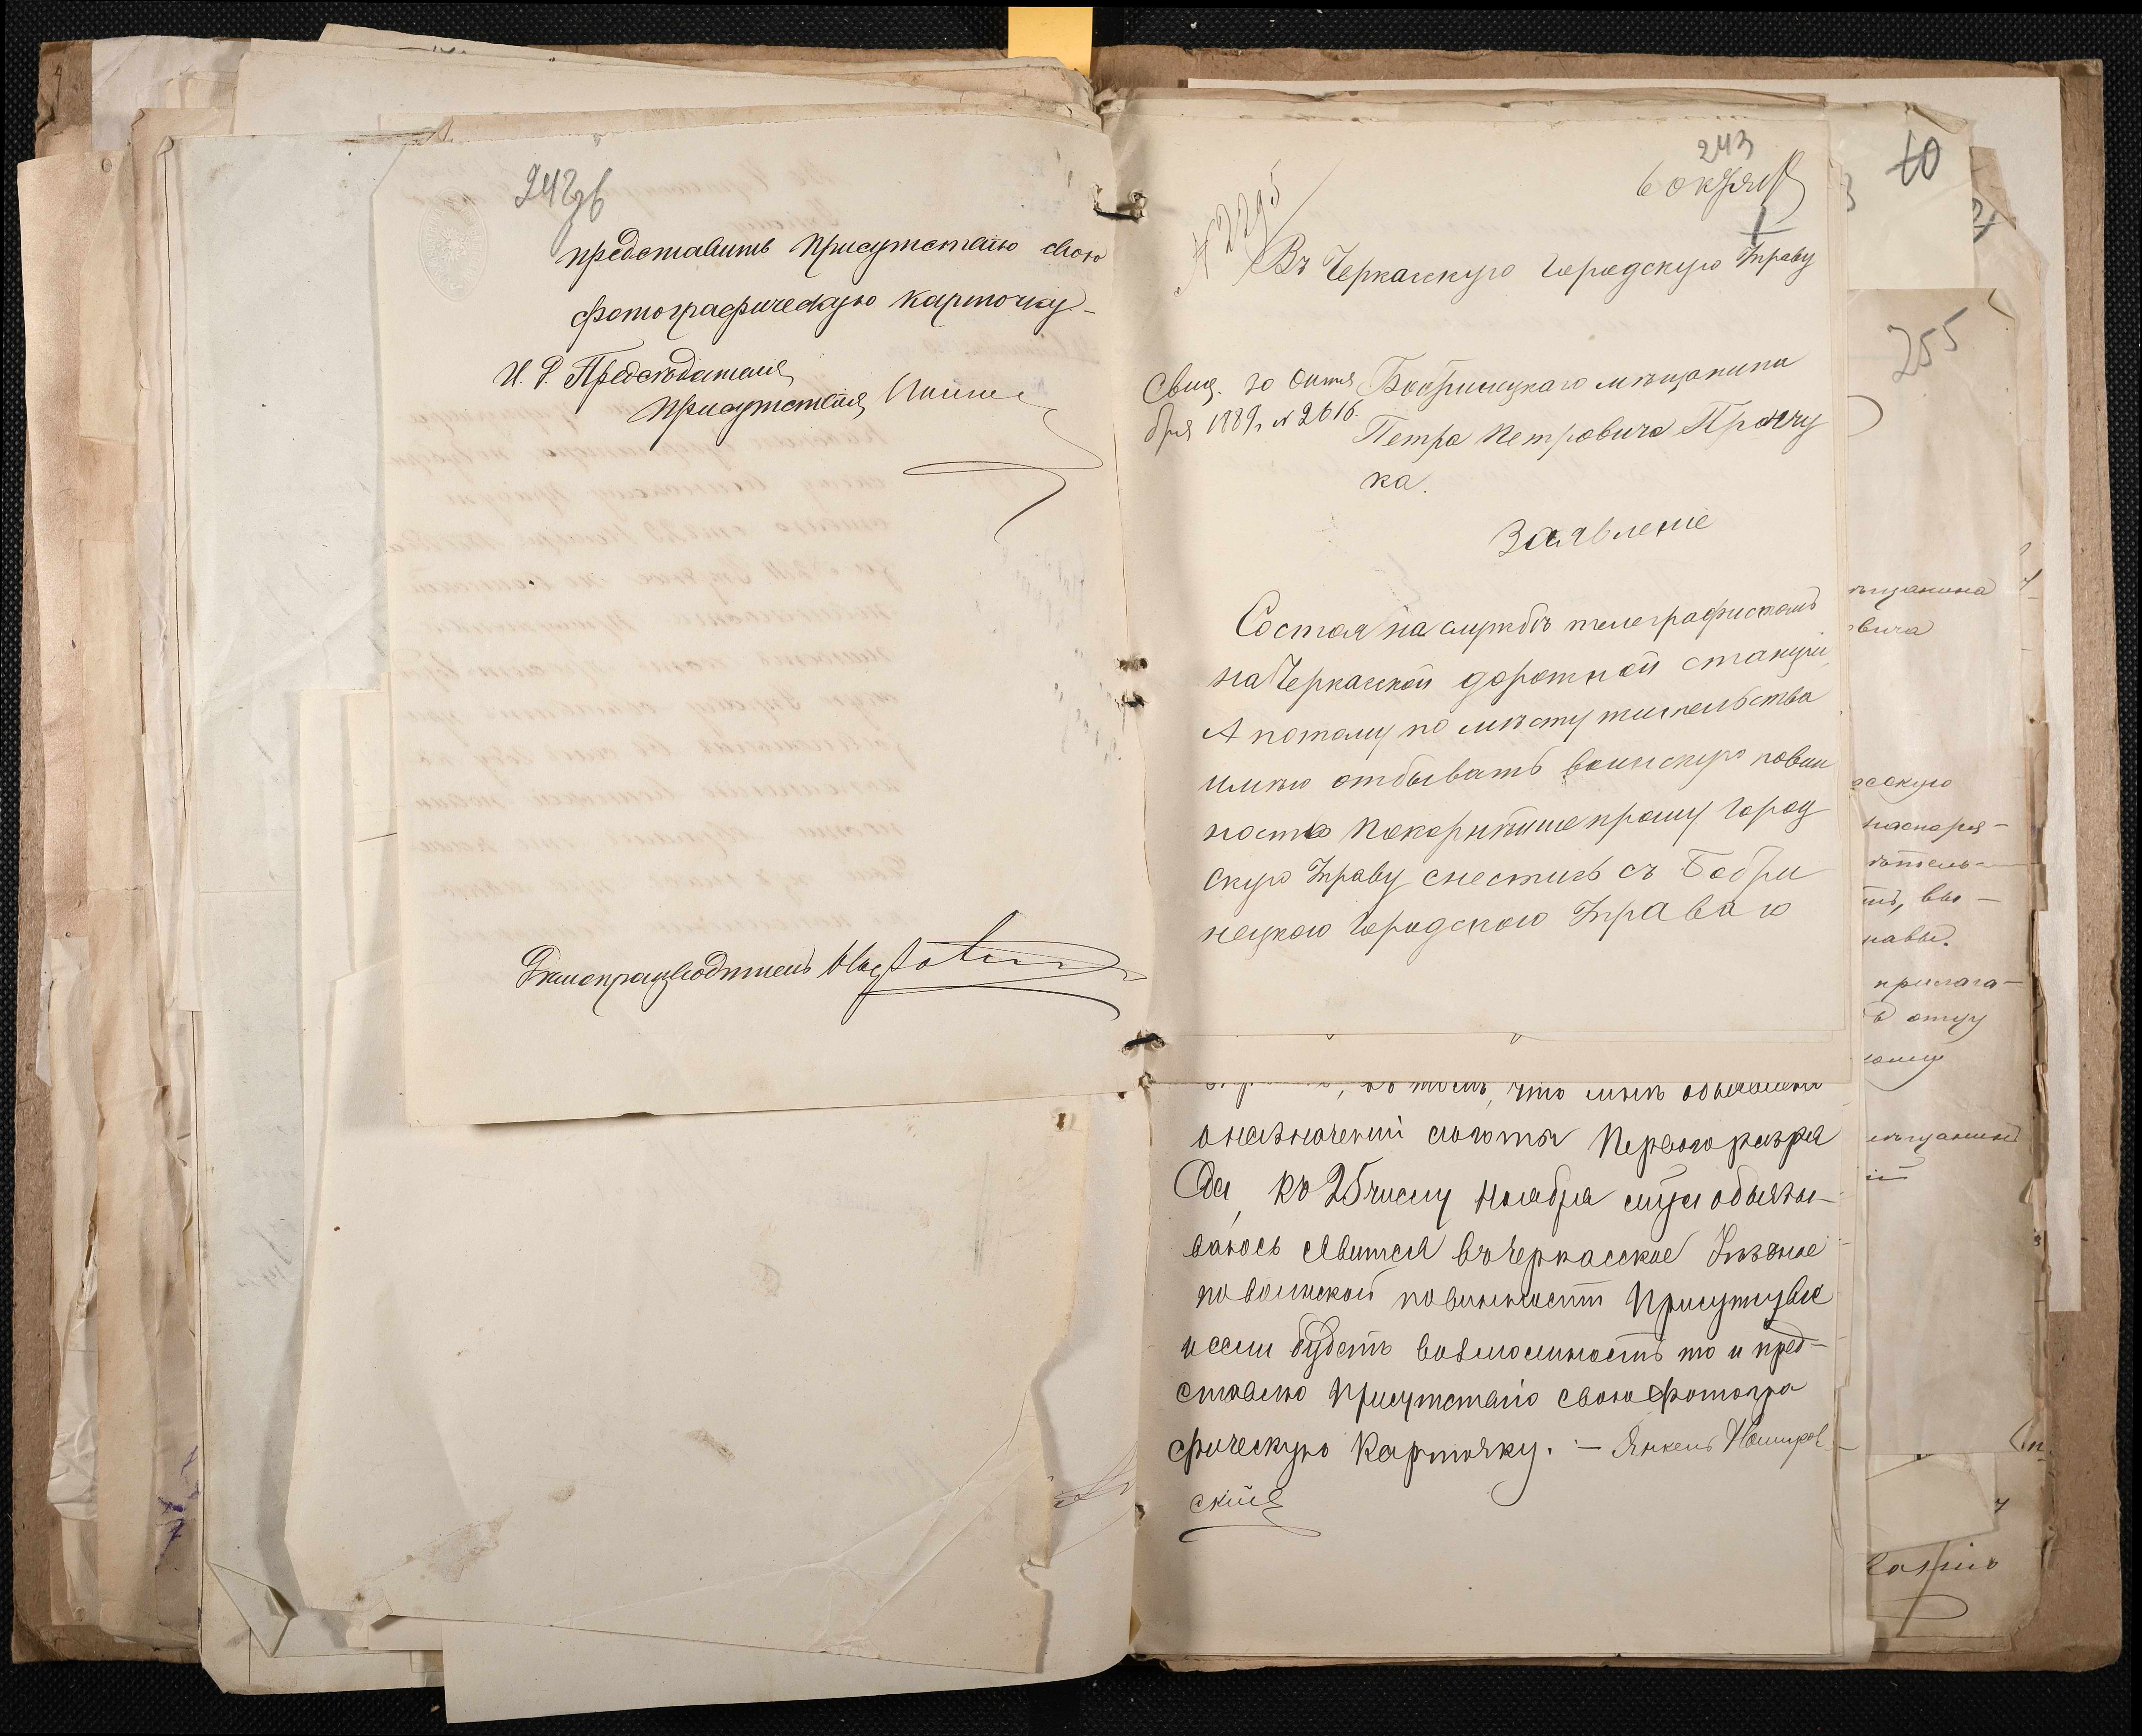 242 об
представить Присутствію свою
фотографическую карточку.-
И. д. Предсѣдателя
Присутствія
Дѣлопроизводитель
243
6 октября
№ 2295
Въ Черкасскую Городскую Управу
Свид. 20 Октя
бря 1889 г № 2616.
Бобринецкаго мѣщанина
Петра Петровича Прачу
ка.
Заявленіе
Состоя на службѣ телеграфистомъ
на Черкасской дорожной станціи,
А потому по мѣсту жительства
имѣю отбывать воинскую повин
ность Покорнѣйше прошу Город
скую Управу снестись съ Бобри
нецкою Городскою Управаю
что мнѣ объявлено
о назначеніи льготы Перваго разря
да, къ 25 числу Ноября сего обязы-
ваюсь явится въ Черкасское Уѣздное
по воинской повинности Присутствіе
и если будетъ возможность то и пред-
ставлю Присутствію свою фотогра
фическую Карточку. - Янкель
скій
10
255
ѣщанина
вича
распоря-
прилага-
отцу